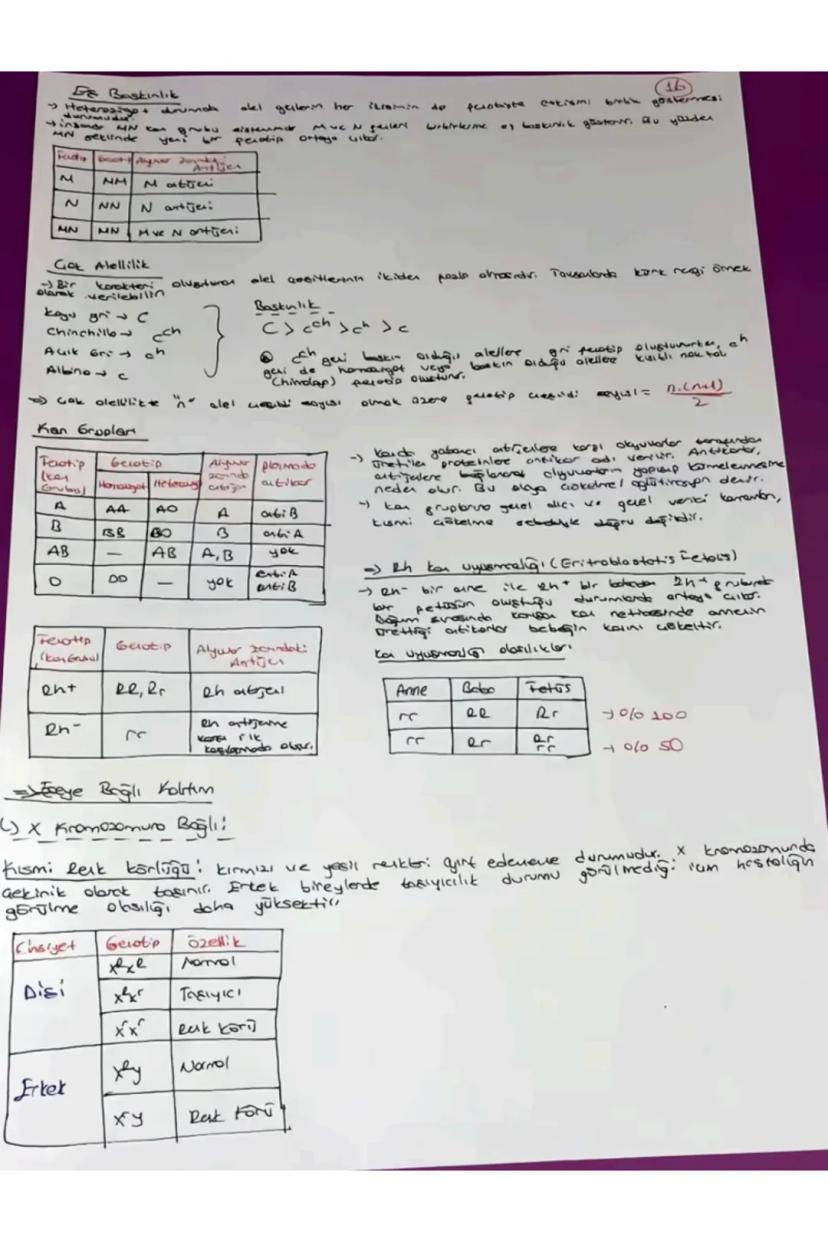 Eş Baskınlık
16
→ Heterozigot durumda alel genlerin her ikisinin de fenotipte etkisini birlikte göstermesi
durumudur.
→ insanda MN kan grubu sisteminde M ve N genleri birbirlerine eş baskınlık gösterir. Bu yüzden
MN şeklinde yeni bir fenotip ortaya çıkar.
Fenotip Genotip Alyuvar zarındaki Antijen
M NM M antijeni
N NN N antijeni
MN MN M ve N antijeni
Çok Alellilik
→ Bir karakteri oluşturan alel çeşitlerinin ikiden fazla olmasıdır. Tavşanlarda kürk rengi örnek
olarak verilebilir
Koyu gri → C
Chinchilla → cch
Açık Gri → ch
Albino → c
Baskınlık
C > cch > ch > c
cch geni baskın olduğu alellere gri fenotip oluştururken, ch
geni de homozigot veya baskın olduğu alellere
fenotip oluşturur.
⇒ Çok alellilikte "n" alel çeşidi sayısı olmak üzere genotip çeşidi sayısı = n.(n+1)/2
Kan Grupları
Fenotip (Kan Grubu) Genotip Alyuvar zarında antijen plazmada antikor
Homozigot Heterozigot
A AA AO A anti B
B BB BO B anti A
AB — AB A, B yok
O OO — yok anti A anti B
→ Kanda yabancı antijenlere karşı akyuvarlar tarafından
üretilen proteinlere antikor adı verilir. Antikorlar,
antijenlere bağlanarak alyuvarların yapışıp kümelenmesine
neden olur. Bu olaya çökelme/aglütinasyon denir.
→ Kan gruplarına genel alıcı ve genel verici kavramları,
kısmi çökelme sebebiyle doğru değildir.
⇒ Rh kan uyuşmazlığı (Eritroblastosis Fetalis)
→ Rh- bir anne ile Rh+ bir babadan Rh+
bir fetüsün oluştuğu durumlarda ortaya çıkar.
Doğum sırasında karışan kan neticesinde annenin
ürettiği antikorlar bebeğin kanını çökeltir.
Kan uyuşmazlığı olasılıkları
Fenotip (Kan Grubu) Genotip Alyuvar zarındaki Antijen
Rh+ RR, Rr Rh antijeni
Rh- rr Rh antijenine karşı ilk karşılaşmada oluşur.
Anne Baba Fetüs
rr RR Rr → %100
rr Rr Rr rr → %50
⇒ Eşeye Bağlı Kalıtım
↳ X Kromozomuna Bağlı:
Kısmi Renk körlüğü: kırmızı ve yeşil renkleri ayırt edememe durumudur. X kromozomunda
çekinik olarak taşınır. Erkek bireylerde taşıyıcılık durumu görülmediği için hastalığın
görülme olasılığı daha yüksektir.
Cinsiyet Genotip Özellik
Dişi XRXR Normal
XRXr Taşıyıcı
XrXr Renk körü
Erkek XRy Normal
Xry Renk Körü